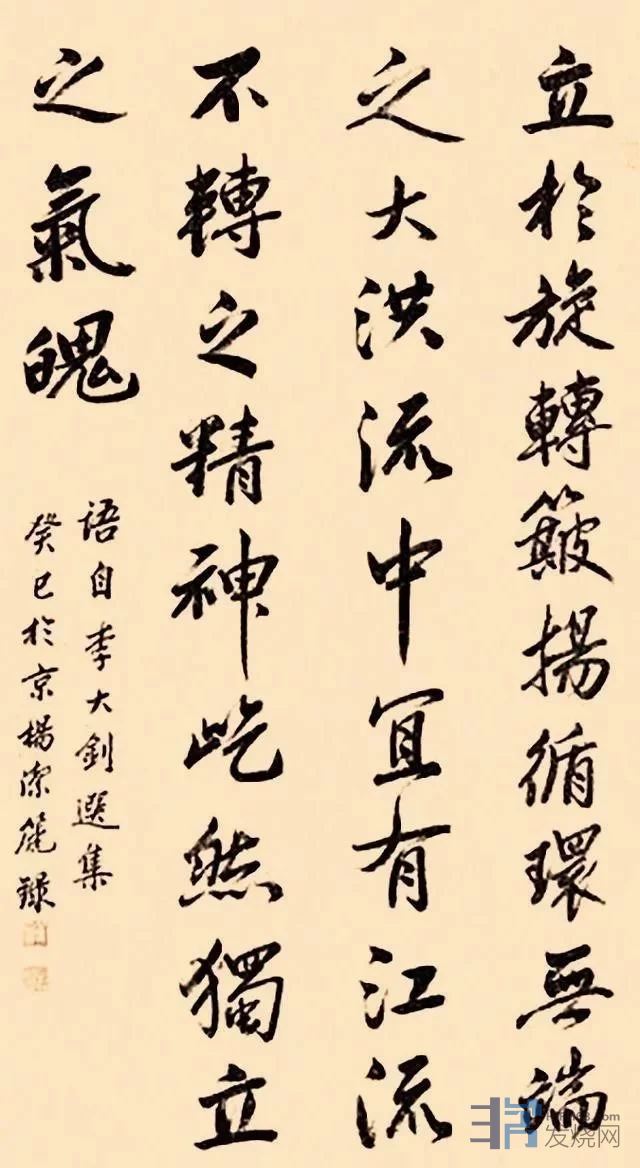 立於旋轉簸揚循環無端
之大洪流中宜有江流
不轉之精神屹然獨立
之氣魄
语自李大釗選集
癸巳於京楊潔篪録
发烧网